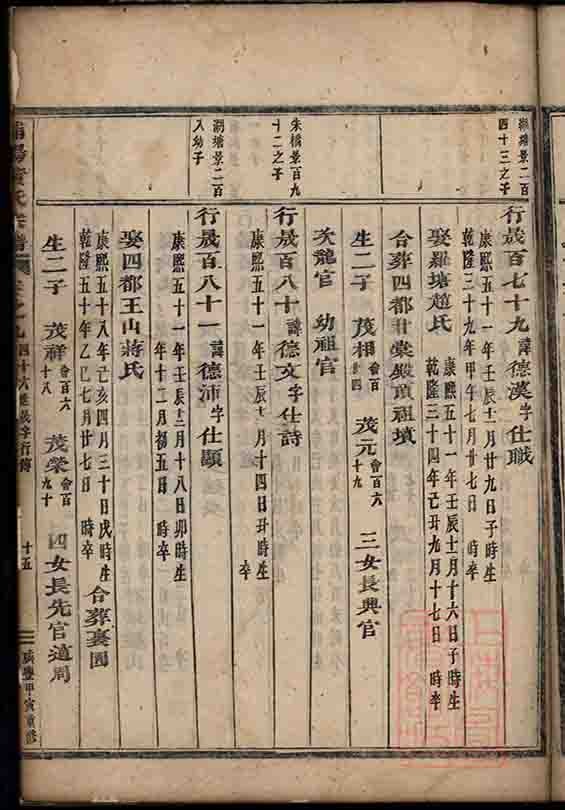 湖塘景二百
四十三之子
行晟百七十九諱德漢字仕職
康熙五十一年壬辰十二月廿九日子時生
乾隆三十九年甲午七月廿七日 時卒
娶羅塘趙氏
康熙五十一年壬辰十二月十六日子時生
乾隆三十四年己丑九月十七日 時卒
合葬四都甘棠殿頂祖墳
生二子 茂相會百廿四 茂元會百六十九 三女長興官
次龍官 幼祖官
朱橋景百九
十二之子
行晟百八十諱德文字仕詩
康熙五十一年壬辰十一月十四日丑時生
卒
湖塘景二百
八幼子
行晟百八十一諱德沛字仕顯
康熙五十一年壬辰十二月十八日卯時生
年十二月初五日 時卒
娶四都王山蔣氏
康熙五十八年己亥四月三十日戌時生
乾隆五十年乙巳七月廿七日 時卒
合葬裏園
生二子 茂祥會百六十八 茂榮會百九十 四女長先官適周
氏宗譜 卷之九 四十六世晟字行傳 十五 咸豐甲寅重修